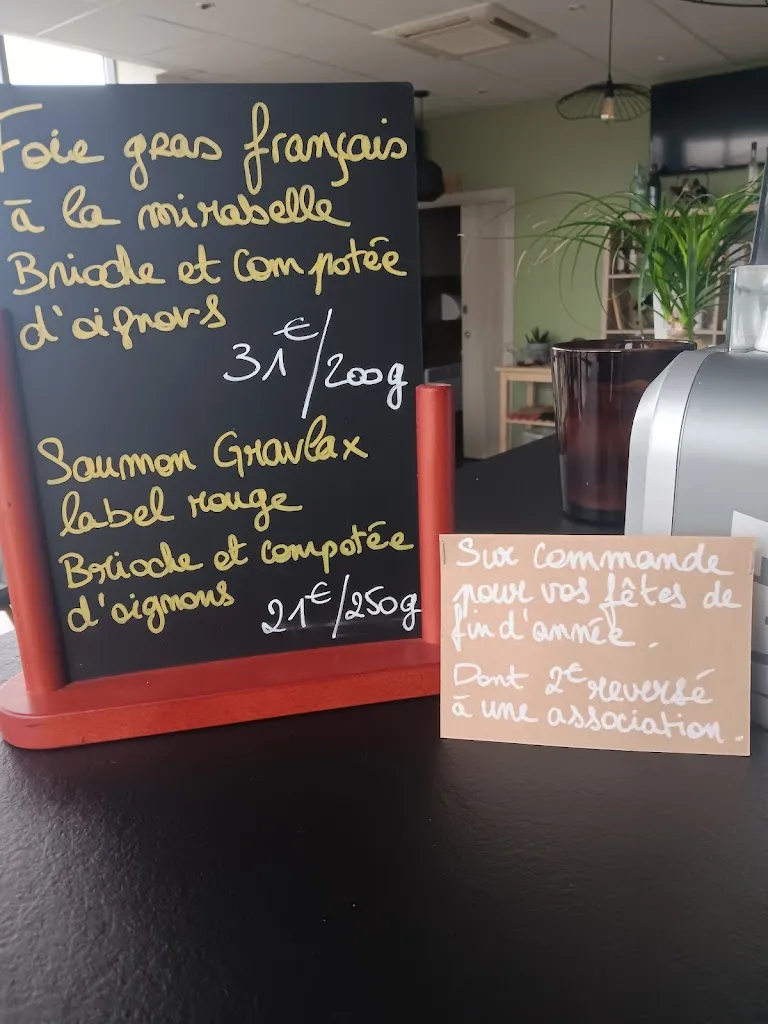 Foie gras français
à la mirabelle
Brioche et compotée
d'oignons
31€/200g
Saumon Gravlax
label rouge
Brioche et compotée
d'oignons
21€/250g
Sur commande
pour vos fêtes de
fin d'année.
Dont 2€ reversé
à une association.